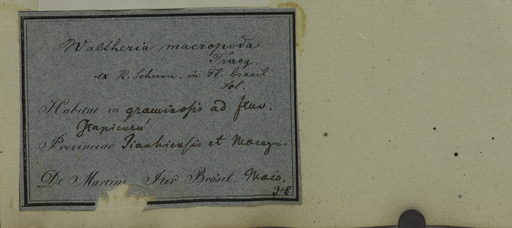 Waltheria macropoda
Turcz.
ex K. Schum. in Fl. brasil
Habitat in graminosis ad fluv.
Itapicurú
Provinciae Piauhiensis et Maragn.
Dr. Martius Iter Brasil. Maco.